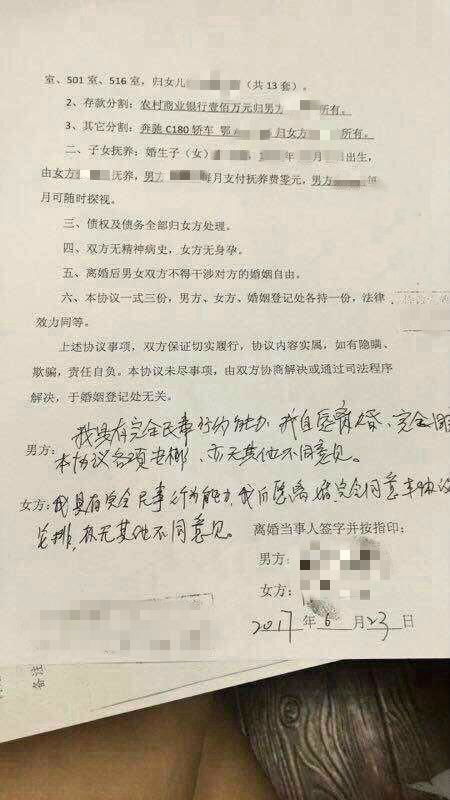 室、501 室、516 室，归女儿（共 13 套）。
2、存款分割：农村商业银行壹佰万元归男方所有。
3、其它分割：奔驰 C180 轿车 鄂归女方所有。
二、子女抚养：婚生子（女）年月出生，
由女方抚养，男方每月支付抚养费零元，男方每
月可随时探视。
三、债权及债务全部归女方处理。
四、双方无精神病史，女方无身孕。
五、离婚后男女双方不得干涉对方的婚姻自由。
六、本协议一式三份，男方、女方、婚姻登记处各持一份，法律
效力同等。
上述协议事项，双方保证切实履行，协议内容实属，如有隐瞒、
欺骗，责任自负。本协议未尽事项，由双方协商解决或通过司法程序
解决，于婚姻登记处无关。
我具有完全民事行为能力，我自愿离婚，完全同
男方：本协议各项安排，亦无其他不同意见。
女方：我具有完全民事行为能力，我自愿离婚完全同意本协议
安排，亦无其他不同意见。
离婚当事人签字并按指印：
男方：
女方：
2017 年 6 月 23 日
备注